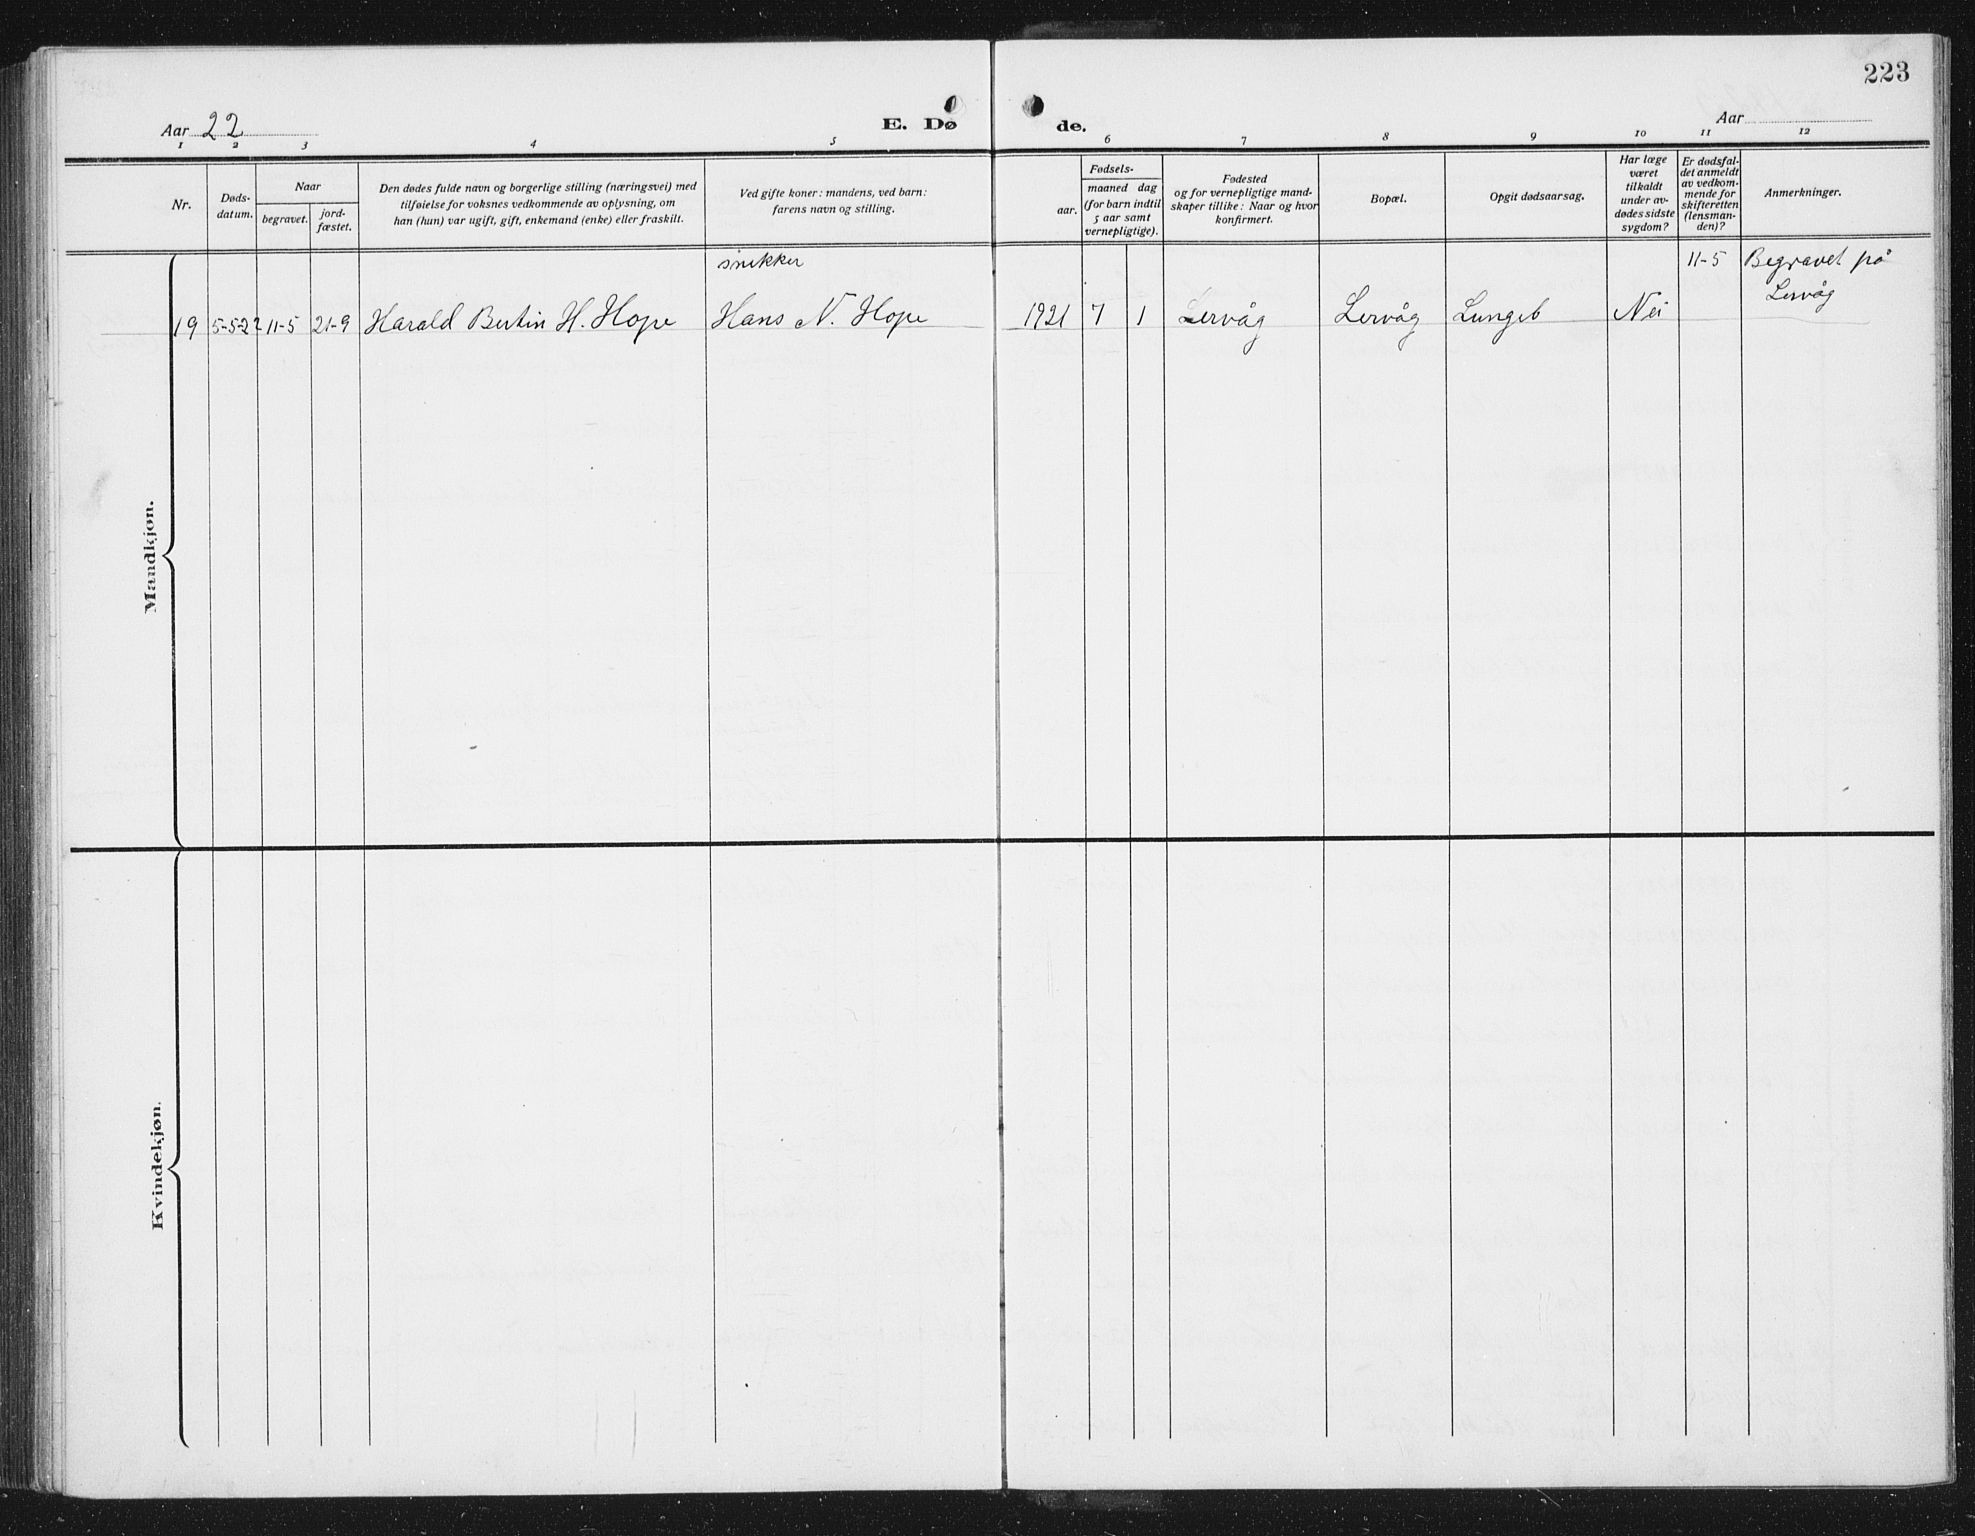 223
Aar 22
E. Dø
de.
Aar
1 2 3 4 5 6 7 8 9 10 11 12
Nr.
Døds-
datum.
Naar
begravet.
jord-
fæstet.
Den dødes fulde navn og borgerlige stilling (næringsvei) med
tilføielse for voksnes vedkommende av oplysning, om
han (hun) var ugift, gift, enkemand (enke) eller fraskilt.
Ved gifte koner: mandens, ved barn:
farens navn og stilling.
Fødsels-
aar.
maaned dag
(for barn indtil
5 aar samt
vernepligtige).
Fødested
og for vernepligtige mand-
skaper tillike: Naar og hvor
konfirmert.
Bopæl.
Opgit dødsaarsag.
Har læge
været
tilkaldt
under av-
dødes sidste
sygdom?
Er dødsfal-
det anmeldt
av vedkom-
mende for
skifteretten
(lensman-
den)?
Anmerkninger.
Mandkjøn.
snekker
11-5 Begravet på
Lervåg
19 5-5-22 11-5 21-9 Harald Bertin H. Hope Hans N. Hope 1921 7 1 Lervåg Lervåg Lungeb Nei
Kvindekjøn.